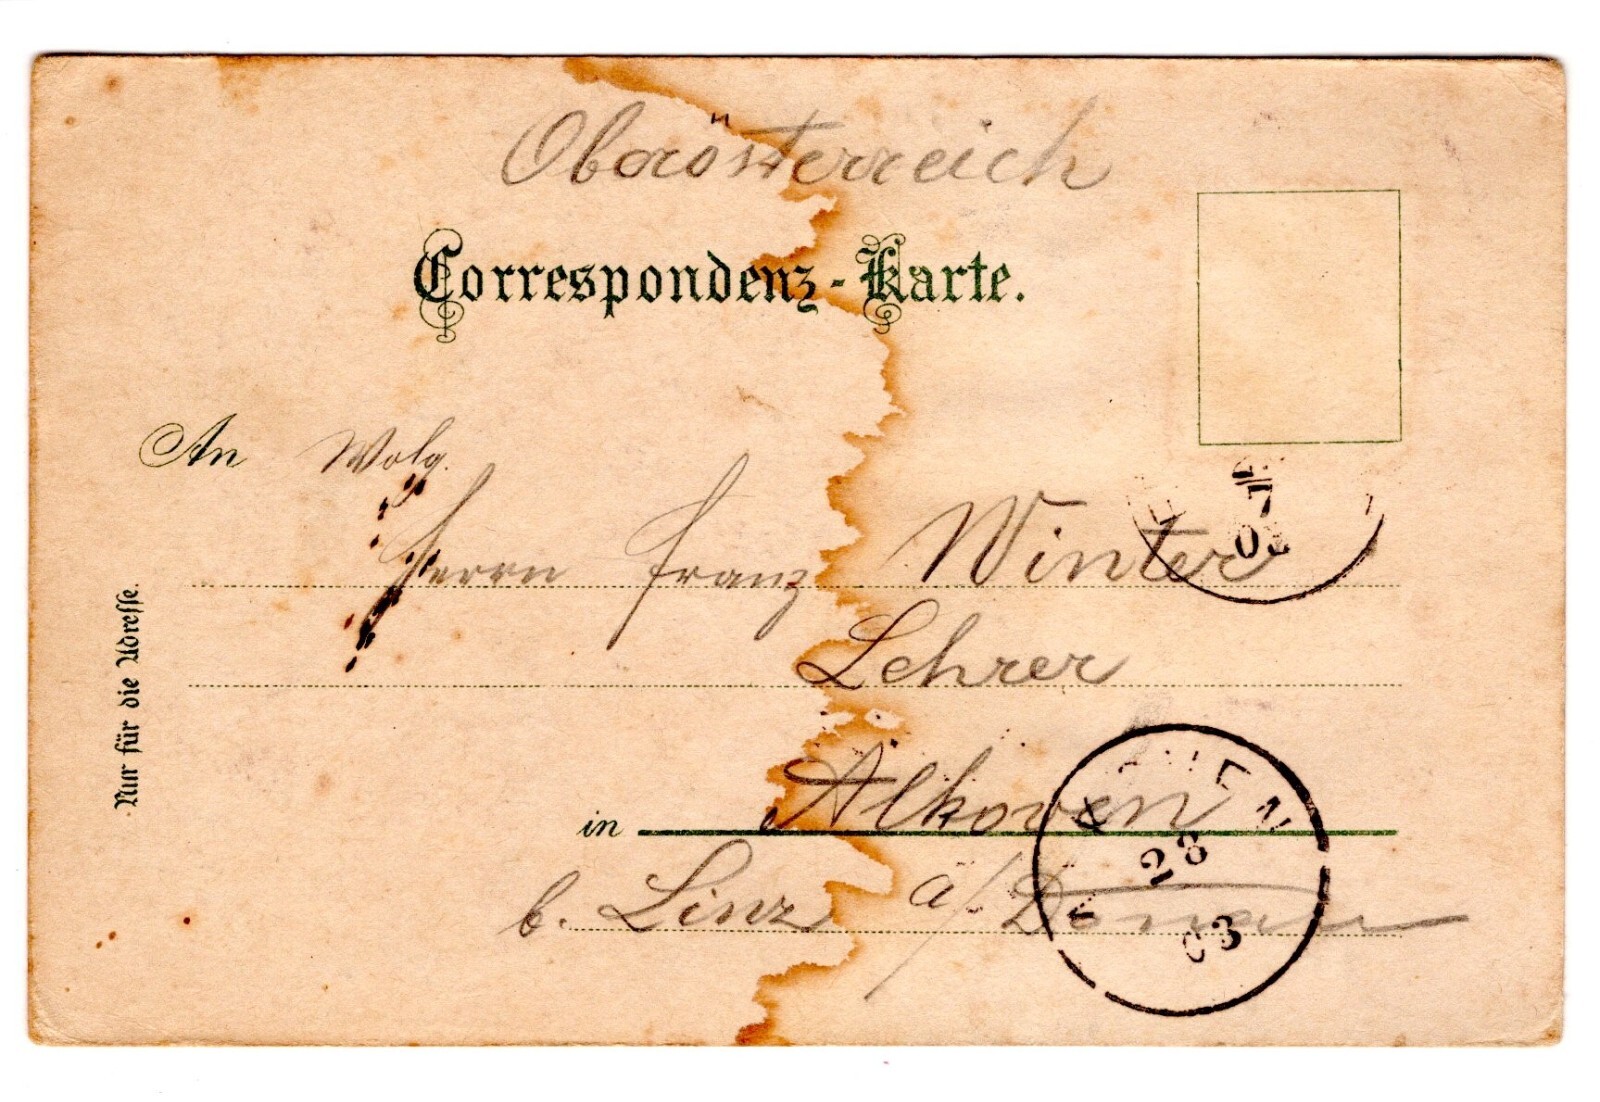 Oberösterreich
Correspondenz-Karte.
An Wolg.
Herrn Franz Winter
Lehrer
in Alkoven
b. Linz a/ Donau
Nur für die Adresse.
03